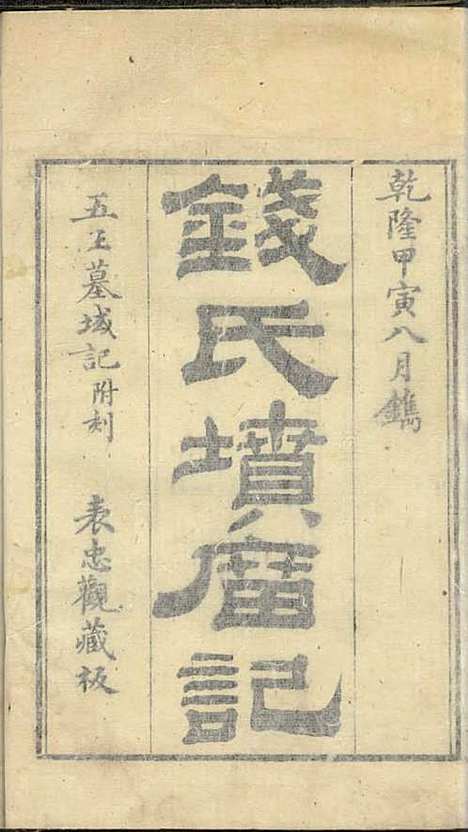 乾隆甲寅八月鐫
錢氏墳庿記
五王墓域記附刻 表忠觀藏板